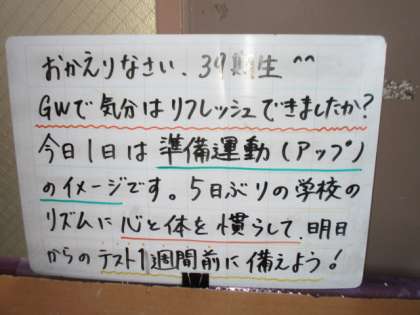 おかえりなさい、39期生 ^^
GWで気分はリフレッシュできましたか?
今日1日は準備運動(アップ)
のイメージです。5日ぶりの学校の
リズムに心と体を慣らして、明日
からのテスト1週間前に備えよう!